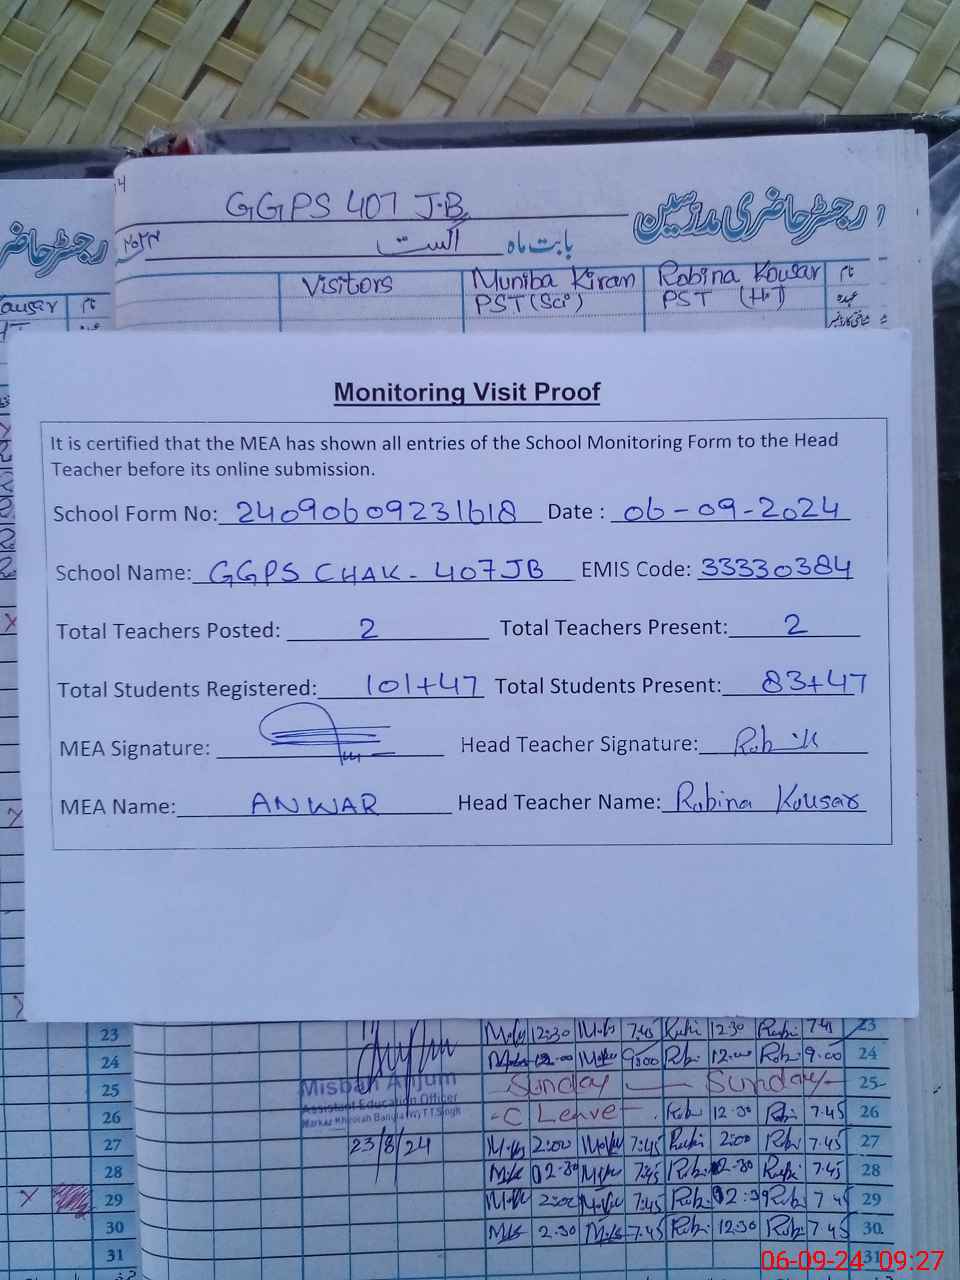 GGPS 407 J.B
رجسٹر حاضری مدرسین
بابت ماہ اگست
نام Robina Kousar Muniba Kiran Visitors
عہدہ PST (H.T) PST (Sci)
Monitoring Visit Proof
It is certified that the MEA has shown all entries of the School Monitoring Form to the Head
Teacher before its online submission.
School Form No: 24090609231618 Date : 06-09-2024
School Name: GGPS CHAK-407JB EMIS Code: 33330384
Total Teachers Posted: 2 Total Teachers Present: 2
Total Students Registered: 101+47 Total Students Present: 83+47
MEA Signature: Head Teacher Signature:
MEA Name: ANWAR Head Teacher Name: Robina Kousar
23 12:30 7.45 12.30 7.45 23
24 12.00 9:00 12.00 9.00 24
25 Sunday Sunday 25
Misbah Anjum
Assistant Education Officer
26 C Leave 12.30 7.45 26
27 23/8/24 2:00 7:45 2:00 7.45 27
28 7:45 7.45 28
29 7:45 7 45 29
30 2.30 7.45 12.30 7.45 30
31 31
06-09-24 09:27